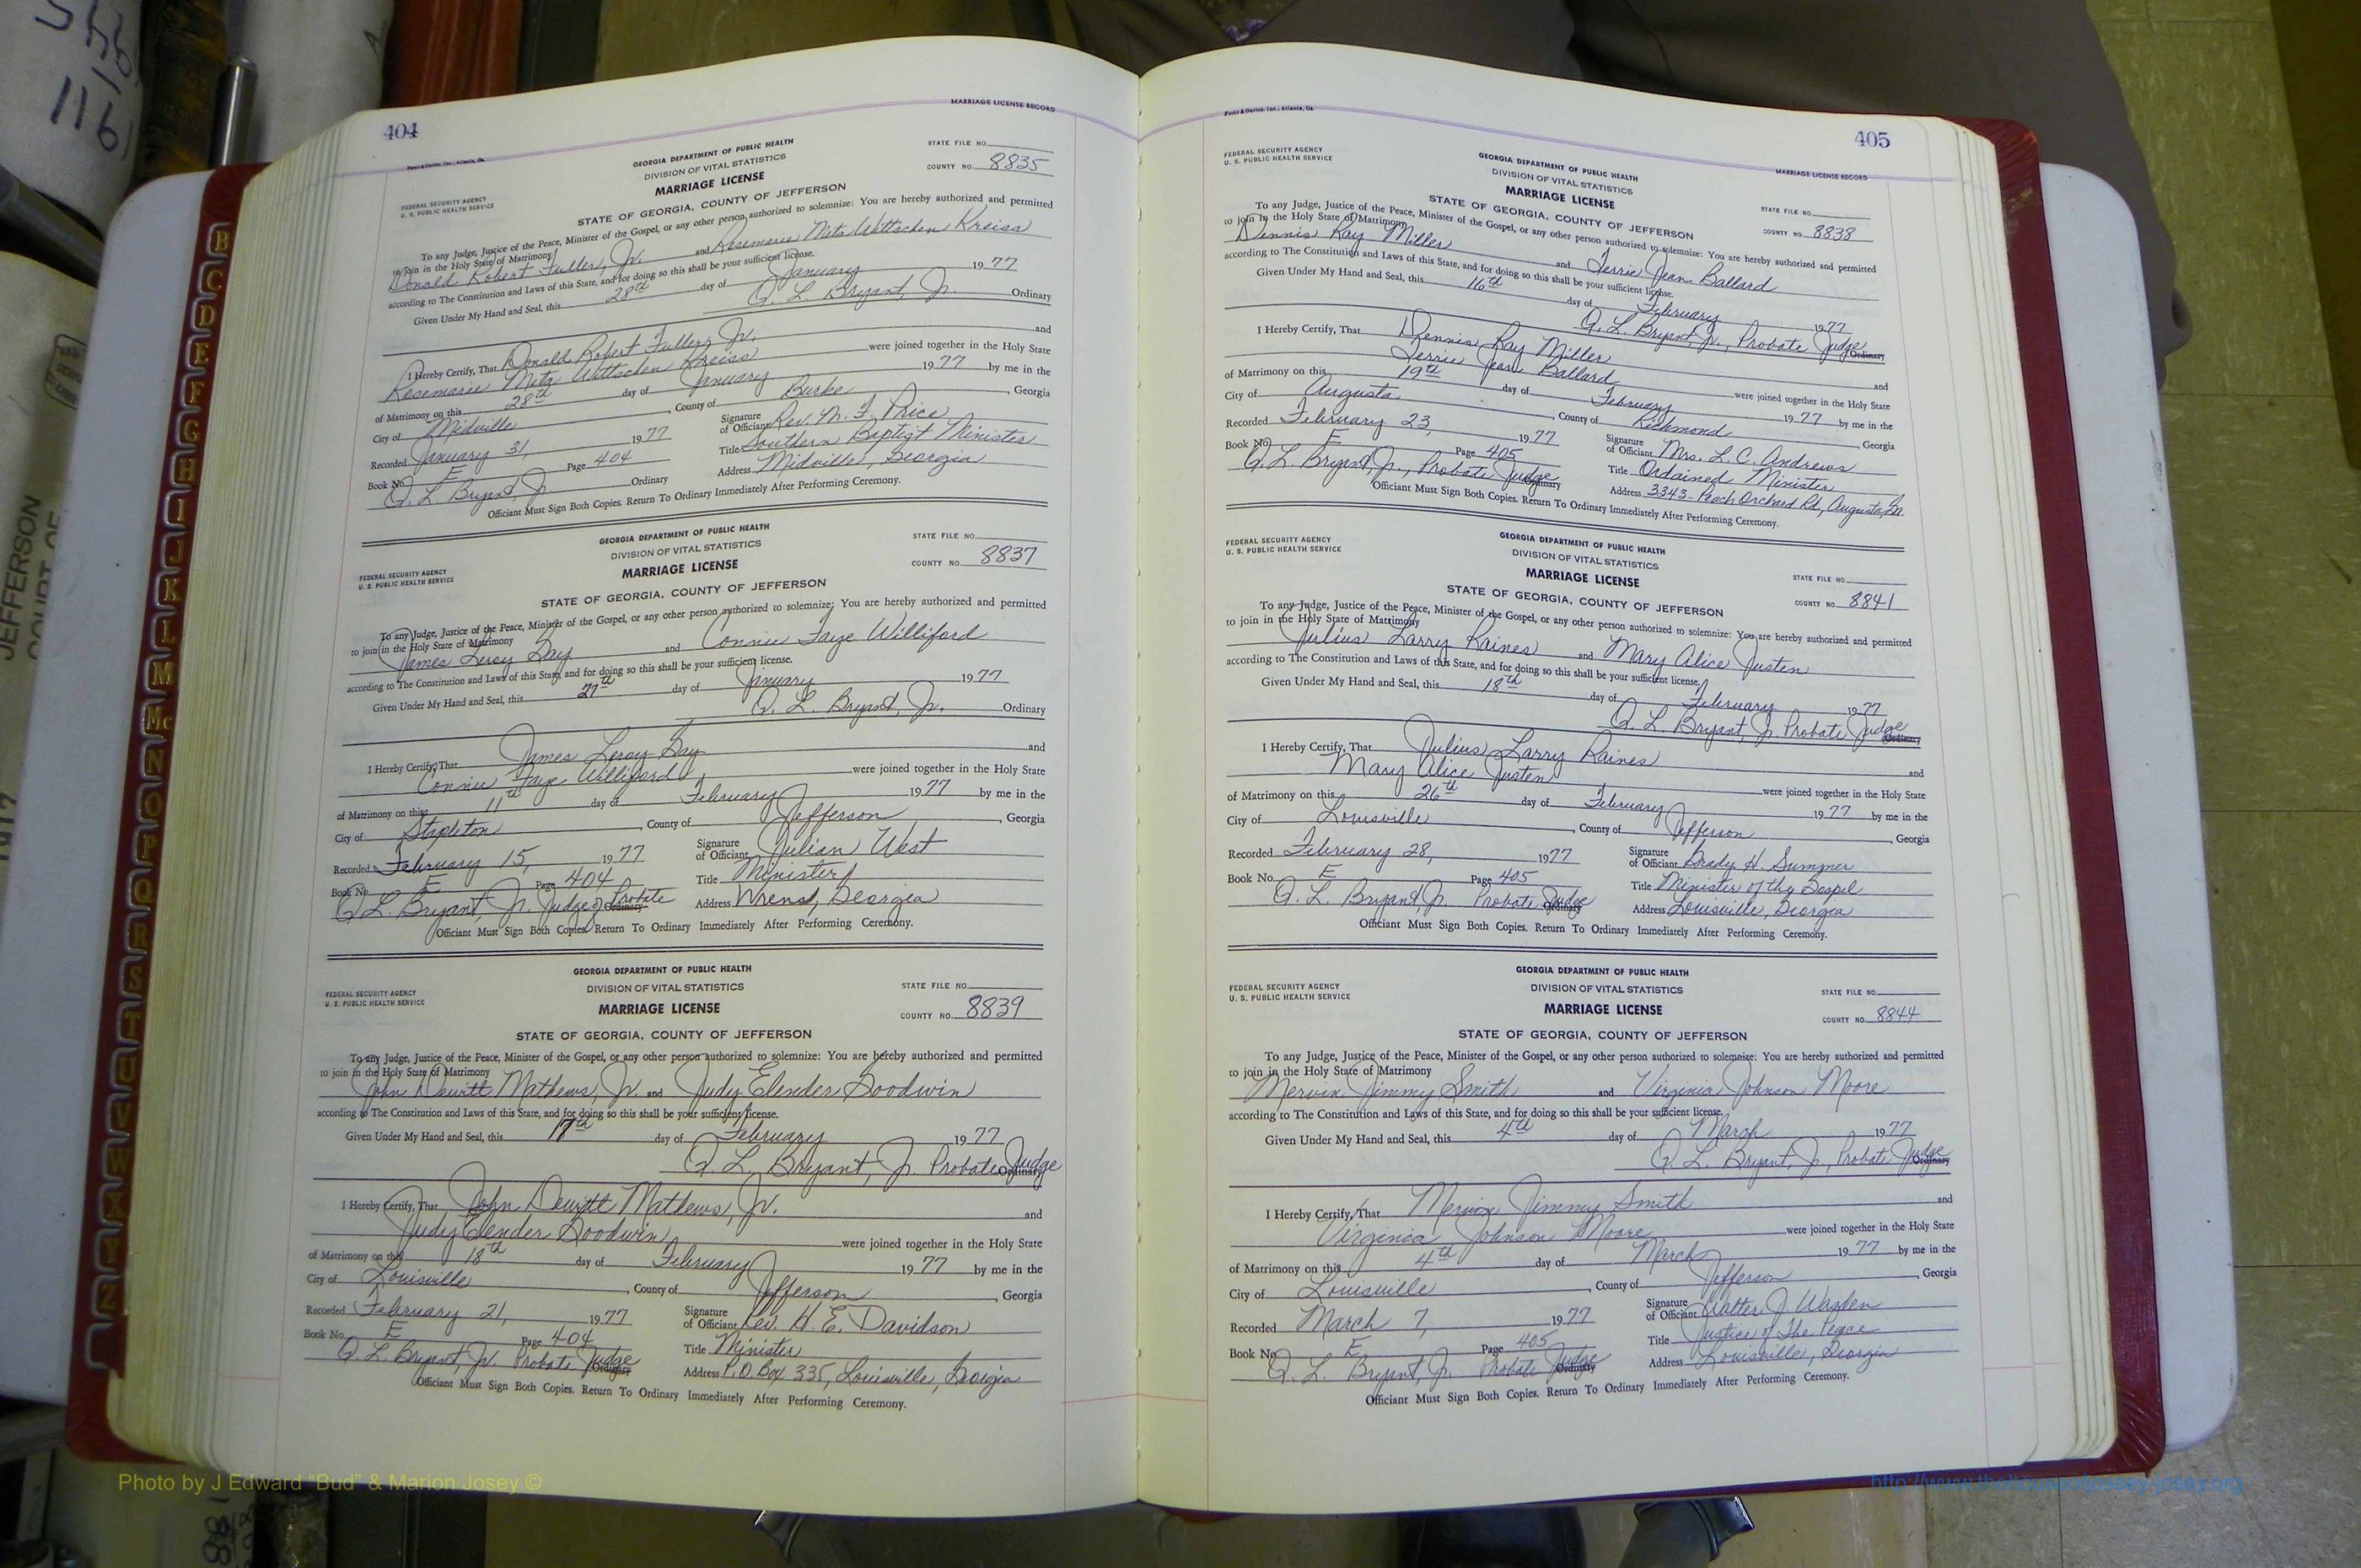 404
MARRIAGE LICENSE RECORD
GEORGIA DEPARTMENT OF PUBLIC HEALTH
DIVISION OF VITAL STATISTICS
MARRIAGE LICENSE
STATE FILE NO.
COUNTY NO. 8835
FEDERAL SECURITY AGENCY
U. S. PUBLIC HEALTH SERVICE
STATE OF GEORGIA, COUNTY OF JEFFERSON
To any Judge, Justice of the Peace, Minister of the Gospel, or any other person authorized to solemnize: You are hereby authorized and permitted
to join in the Holy State of Matrimony
Donald Robert Fuller, Jr. and Rosemarie Meta Wittschen Kreiss
according to The Constitution and Laws of this State, and for doing so this shall be your sufficient license.
Given Under My Hand and Seal, this 28th day of January 1977
Q. L. Bryant, Jr. Ordinary
I Hereby Certify, That Donald Robert Fuller, Jr. and
Rosemarie Meta Wittschen Kreiss were joined together in the Holy State
of Matrimony on this 28th day of January 1977 by me in the
City of Midville, County of Burke, Georgia
Recorded January 31, 1977
Signature of Officiant Rev. M. F. Price
Book No. E Page 404
Title Southern Baptist Minister
Q. L. Bryant, Jr. Ordinary
Address Midville, Georgia
Officiant Must Sign Both Copies. Return To Ordinary Immediately After Performing Ceremony.
GEORGIA DEPARTMENT OF PUBLIC HEALTH
DIVISION OF VITAL STATISTICS
MARRIAGE LICENSE
STATE FILE NO.
COUNTY NO. 8837
FEDERAL SECURITY AGENCY
U. S. PUBLIC HEALTH SERVICE
STATE OF GEORGIA, COUNTY OF JEFFERSON
To any Judge, Justice of the Peace, Minister of the Gospel, or any other person authorized to solemnize: You are hereby authorized and permitted
to join in the Holy State of Matrimony
James Leroy and Connie Faye Williford
according to The Constitution and Laws of this State, and for doing so this shall be your sufficient license.
Given Under My Hand and Seal, this 27th day of January 1977
Q. L. Bryant, Jr. Ordinary
I Hereby Certify, That James Leroy and
Connie Faye Williford were joined together in the Holy State
of Matrimony on this 11th day of February 1977 by me in the
City of Stapleton, County of Jefferson, Georgia
Recorded February 15, 1977
Signature of Officiant Julian West
Book No. E Page 404
Title Minister
Q. L. Bryant, Jr. Judge of Probate Ordinary
Address Wrens, Georgia
Officiant Must Sign Both Copies. Return To Ordinary Immediately After Performing Ceremony.
GEORGIA DEPARTMENT OF PUBLIC HEALTH
DIVISION OF VITAL STATISTICS
MARRIAGE LICENSE
STATE FILE NO.
COUNTY NO. 8839
FEDERAL SECURITY AGENCY
U. S. PUBLIC HEALTH SERVICE
STATE OF GEORGIA, COUNTY OF JEFFERSON
To any Judge, Justice of the Peace, Minister of the Gospel, or any other person authorized to solemnize: You are hereby authorized and permitted
to join in the Holy State of Matrimony
John Dewitt Mathews, Jr. and Judy Elender Goodwin
according to The Constitution and Laws of this State, and for doing so this shall be your sufficient license.
Given Under My Hand and Seal, this 17th day of February 1977
Q. L. Bryant, Jr. Probate Judge Ordinary
I Hereby Certify, That John Dewitt Mathews, Jr. and
Judy Elender Goodwin were joined together in the Holy State
of Matrimony on this 18th day of February 1977 by me in the
City of Louisville, County of Jefferson, Georgia
Recorded February 21, 1977
Signature of Officiant Rev. H. E. Davidson
Book No. E Page 404
Title Minister
Q. L. Bryant, Jr. Probate Judge Ordinary
Address P.O. Box 335, Louisville, Georgia
Officiant Must Sign Both Copies. Return To Ordinary Immediately After Performing Ceremony.
405
MARRIAGE LICENSE RECORD
FEDERAL SECURITY AGENCY
U. S. PUBLIC HEALTH SERVICE
GEORGIA DEPARTMENT OF PUBLIC HEALTH
DIVISION OF VITAL STATISTICS
MARRIAGE LICENSE
STATE OF GEORGIA, COUNTY OF JEFFERSON
STATE FILE NO.
COUNTY NO. 8838
To any Judge, Justice of the Peace, Minister of the Gospel, or any other person authorized to solemnize: You are hereby authorized and permitted
to join in the Holy State of Matrimony
Dennis Ray Miller and Terrie Jean Ballard
according to The Constitution and Laws of this State, and for doing so this shall be your sufficient license.
Given Under My Hand and Seal, this 16th day of February 1977
Q. L. Bryant, Jr., Probate Judge Ordinary
I Hereby Certify, That Dennis Ray Miller and
Terrie Jean Ballard were joined together in the Holy State
of Matrimony on this 19th day of February 1977 by me in the
City of Augusta, County of Richmond, Georgia
Recorded February 23, 1977
Signature of Officiant Mrs. L. C. Andrews
Book No. E Page 405
Title Ordained Minister
Q. L. Bryant, Jr., Probate Judge Ordinary
Address 3343 Peach Orchard Rd., Augusta, Ga.
Officiant Must Sign Both Copies. Return To Ordinary Immediately After Performing Ceremony.
FEDERAL SECURITY AGENCY
U. S. PUBLIC HEALTH SERVICE
GEORGIA DEPARTMENT OF PUBLIC HEALTH
DIVISION OF VITAL STATISTICS
MARRIAGE LICENSE
STATE OF GEORGIA, COUNTY OF JEFFERSON
STATE FILE NO.
COUNTY NO. 8841
To any Judge, Justice of the Peace, Minister of the Gospel, or any other person authorized to solemnize: You are hereby authorized and permitted
to join in the Holy State of Matrimony
Julius Larry Raines and Mary Alice Justen
according to The Constitution and Laws of this State, and for doing so this shall be your sufficient license.
Given Under My Hand and Seal, this 18th day of February 1977
Q. L. Bryant, Jr. Probate Judge Ordinary
I Hereby Certify, That Julius Larry Raines and
Mary Alice Justen were joined together in the Holy State
of Matrimony on this 26th day of February 1977 by me in the
City of Louisville, County of Jefferson, Georgia
Recorded February 28, 1977
Signature of Officiant Brady H. Sumner
Book No. E Page 405
Title Minister of the Gospel
Q. L. Bryant, Jr. Probate Judge Ordinary
Address Louisville, Georgia
Officiant Must Sign Both Copies. Return To Ordinary Immediately After Performing Ceremony.
FEDERAL SECURITY AGENCY
U. S. PUBLIC HEALTH SERVICE
GEORGIA DEPARTMENT OF PUBLIC HEALTH
DIVISION OF VITAL STATISTICS
MARRIAGE LICENSE
STATE OF GEORGIA, COUNTY OF JEFFERSON
STATE FILE NO.
COUNTY NO. 8844
To any Judge, Justice of the Peace, Minister of the Gospel, or any other person authorized to solemnize: You are hereby authorized and permitted
to join in the Holy State of Matrimony
Mervin Jimmy Smith and Virginia Johnson Moore
according to The Constitution and Laws of this State, and for doing so this shall be your sufficient license.
Given Under My Hand and Seal, this 4th day of March 1977
Q. L. Bryant, Jr., Probate Judge Ordinary
I Hereby Certify, That Mervin Jimmy Smith and
Virginia Johnson Moore were joined together in the Holy State
of Matrimony on this 4th day of March 1977 by me in the
City of Louisville, County of Jefferson, Georgia
Recorded March 7, 1977
Signature of Officiant Walter J. Warden
Book No. E Page 405
Title Justice of The Peace
Q. L. Bryant, Jr. Probate Judge Ordinary
Address Louisville, Georgia
Officiant Must Sign Both Copies. Return To Ordinary Immediately After Performing Ceremony.
B
C
D
E
F
G
H
I
J
K
L
M
Mc
N
O
P
Q
R
S
T
U
V
W
X
Y
Z
JEFFERSON
COURT OF
Photo by J Edward "Bud" & Marion Josey ©